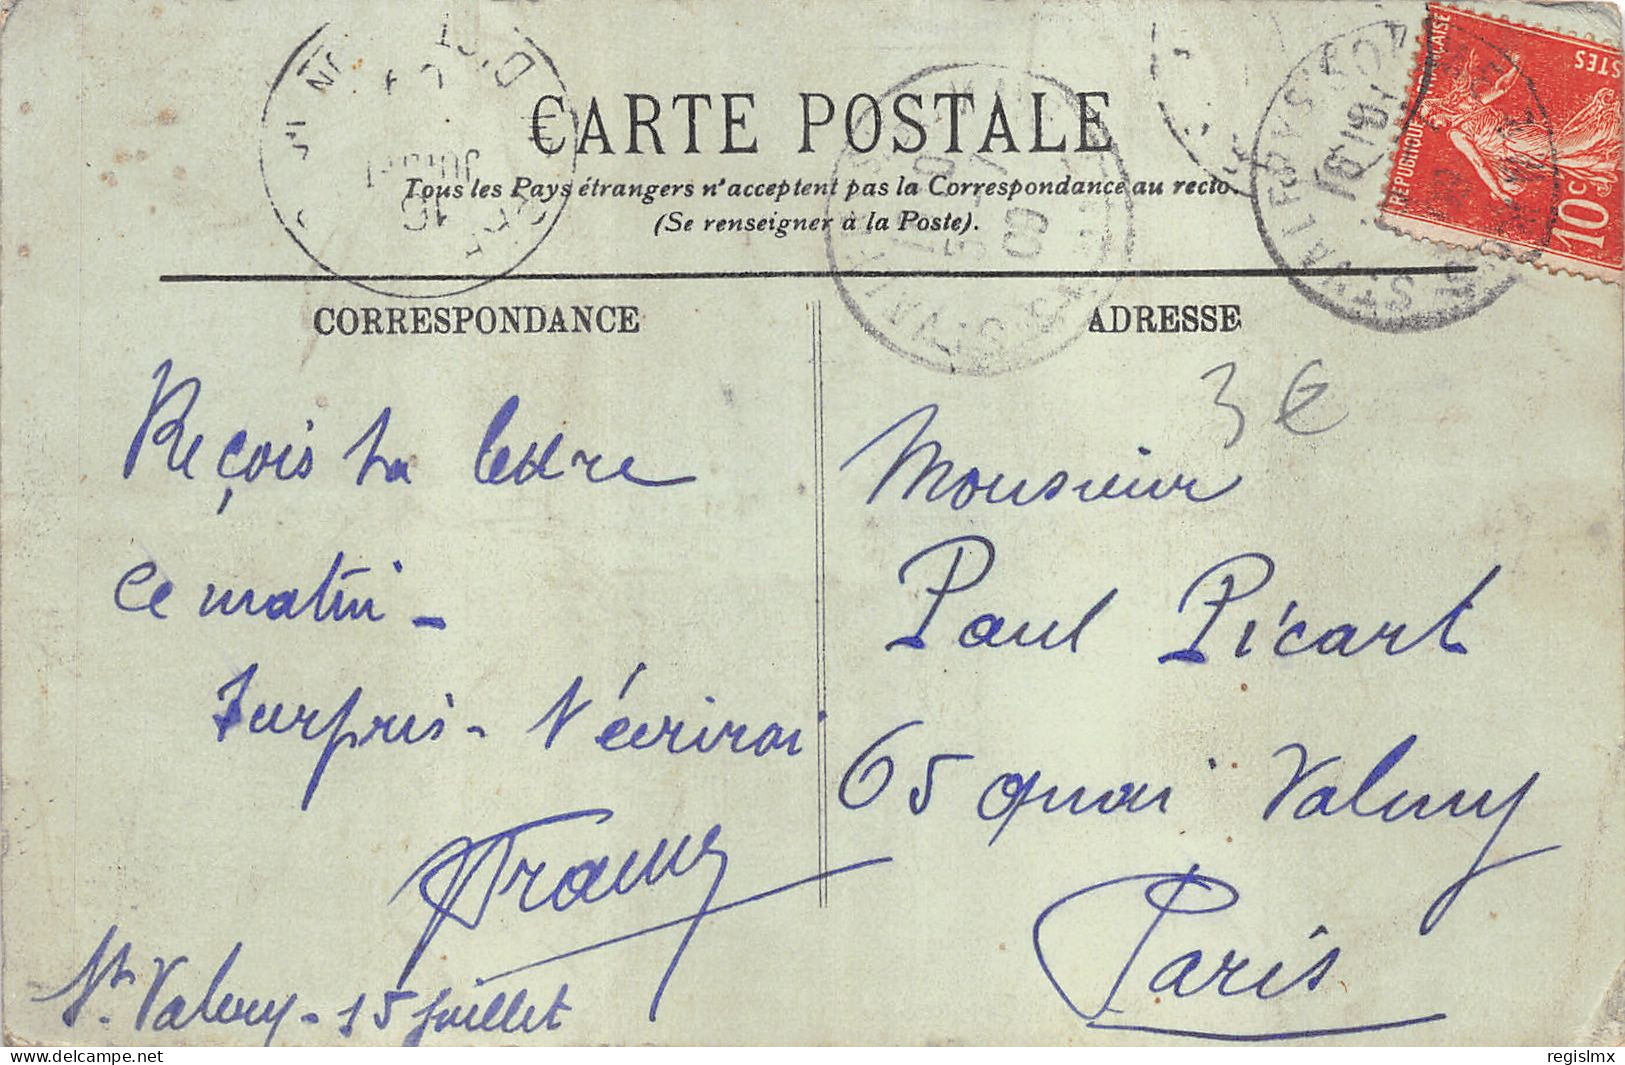 CARTE POSTALE
Tous les Pays étrangers n'acceptent pas la Correspondance au recto
(Se renseigner à la Poste).
RÉPUBLIQUE FRANÇAISE
10c
CORRESPONDANCE
Reçois ta lettre
ce matin -
Surpris - t'écrirai
St Valery - 15 Juillet
ADRESSE
3 €
Monsieur
Paul Picart
65 quai Valmy
Paris
regislmx